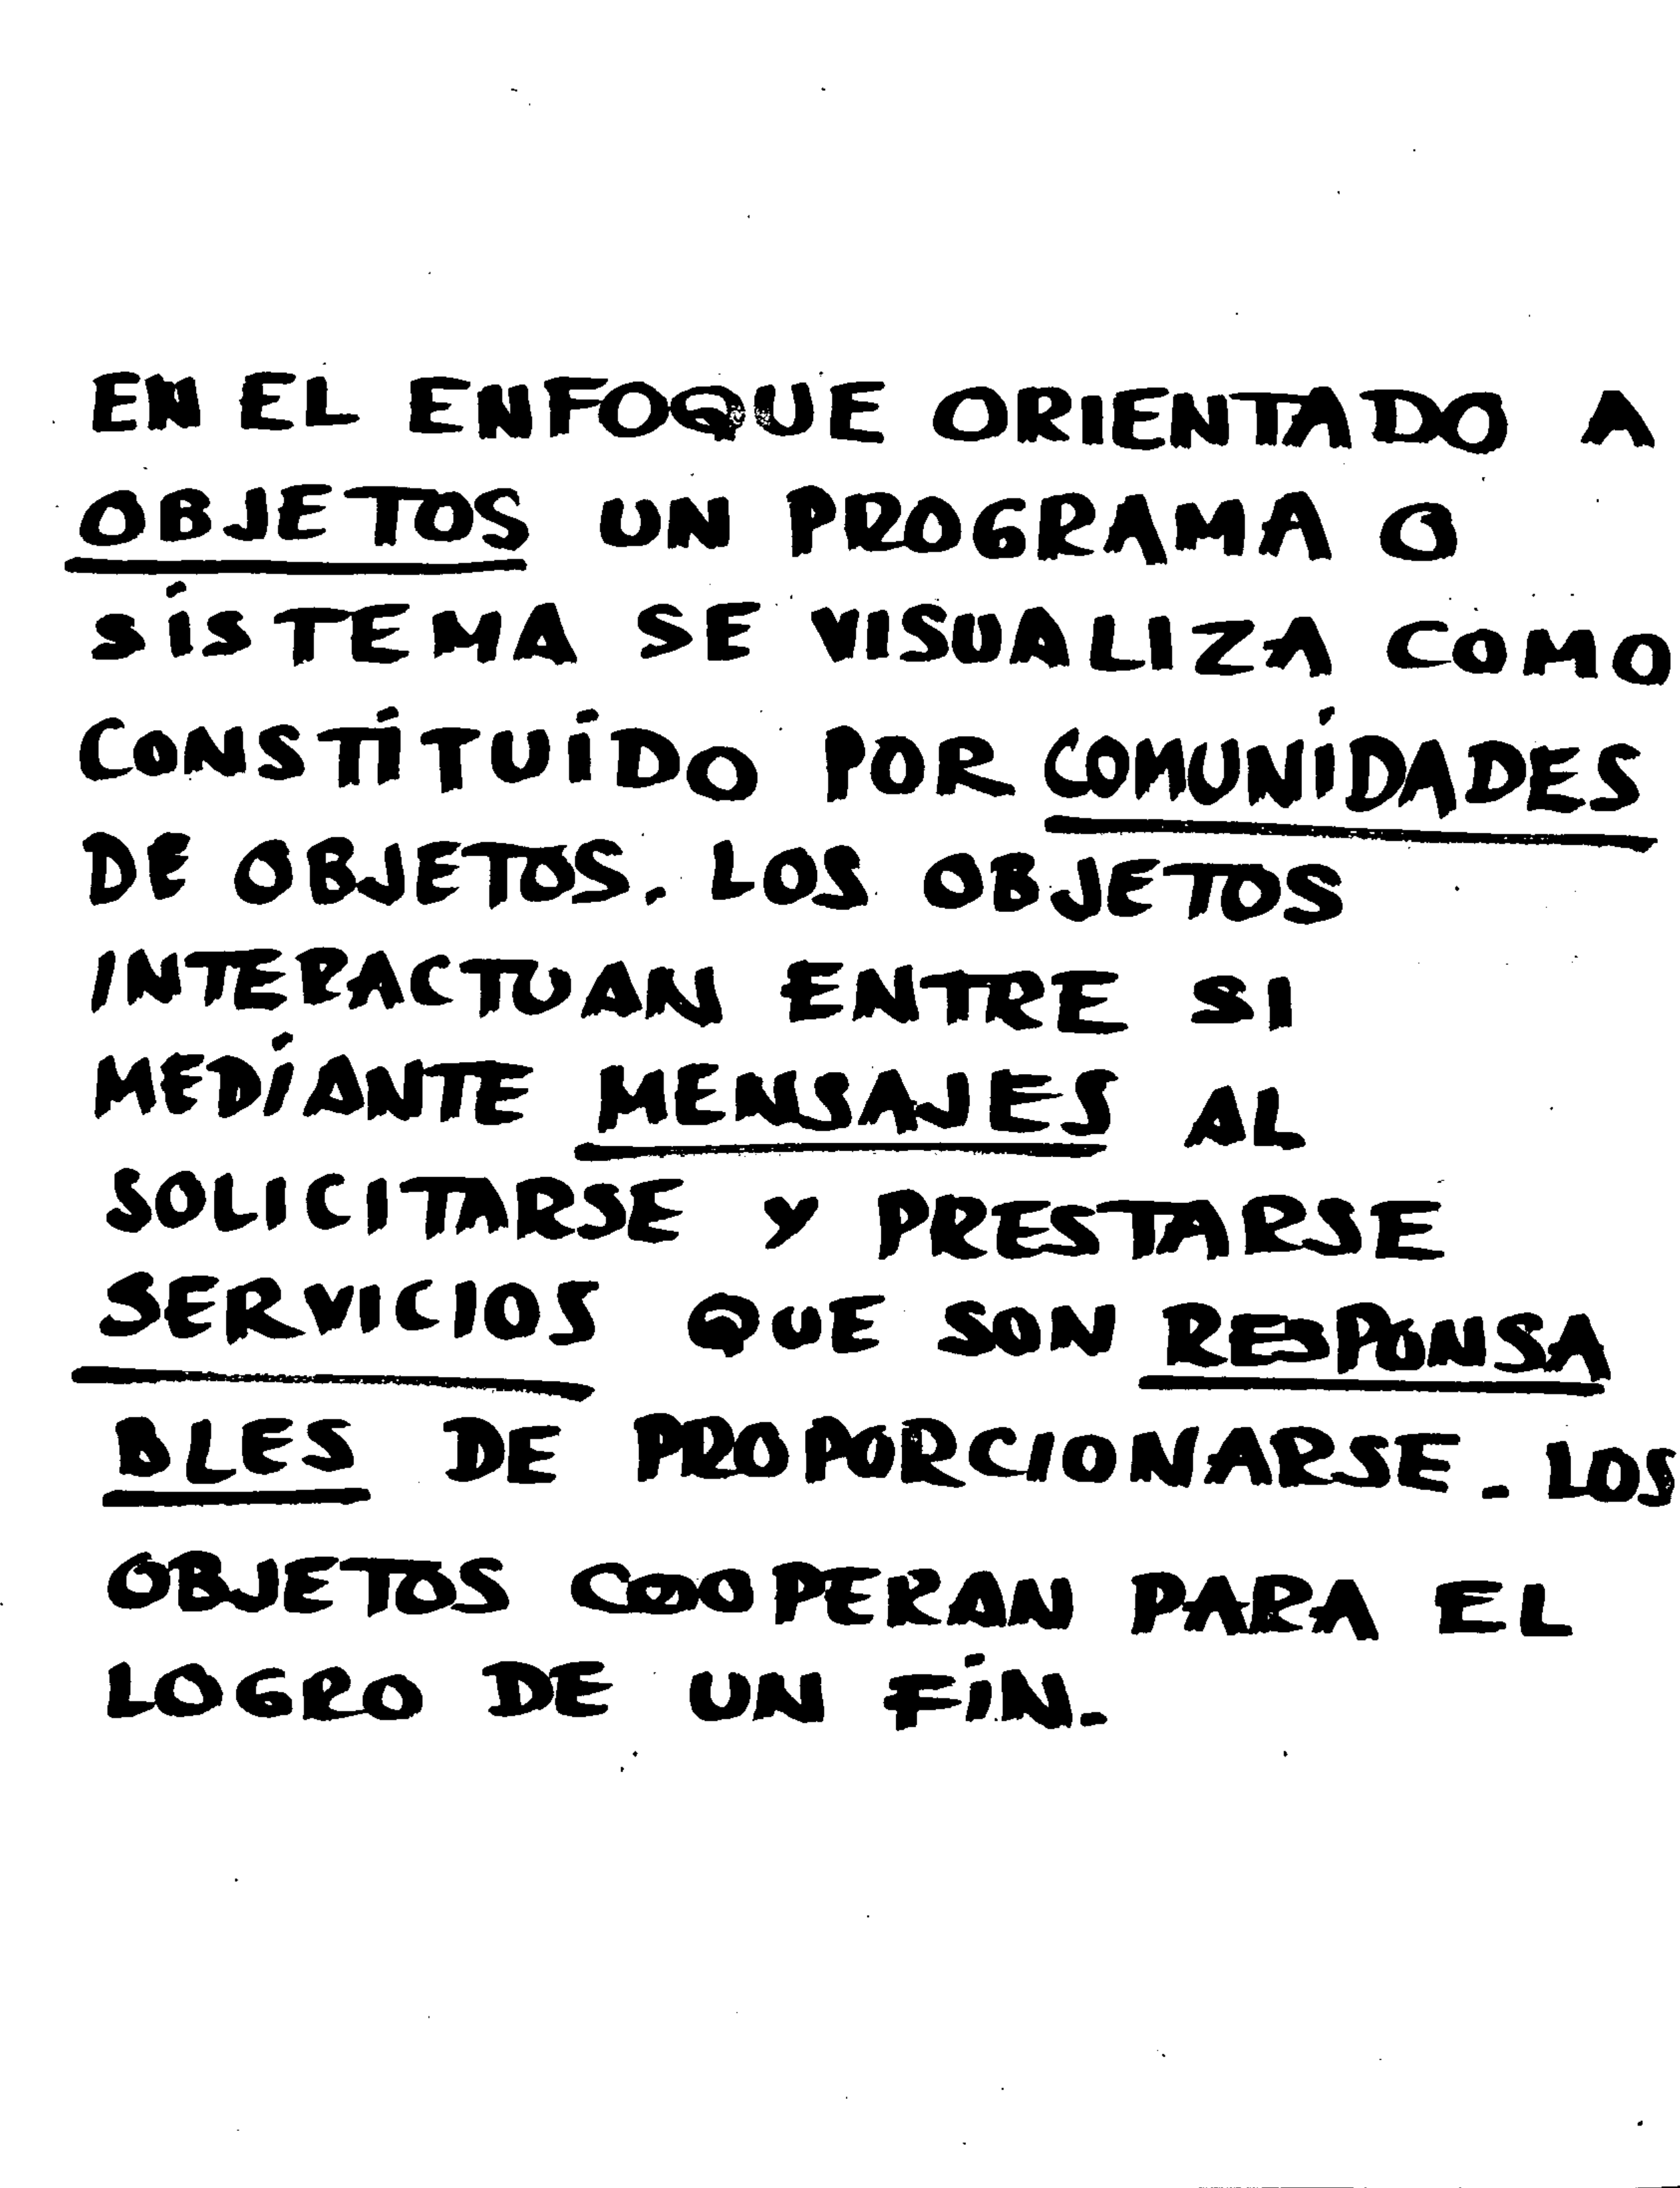 EN EL ENFOQUE ORIENTADO A
OBJETOS UN PROGRAMA O
SISTEMA SE VISUALIZA COMO
CONSTITUIDO POR COMUNIDADES
DE OBJETOS. LOS OBJETOS
INTERACTUAN ENTRE SI
MEDIANTE MENSAJES AL
SOLICITARSE Y PRESTARSE
SERVICIOS QUE SON RESPONSA
BLES DE PROPORCIONARSE. LOS
OBJETOS COOPERAN PARA EL
LOGRO DE UN FIN.